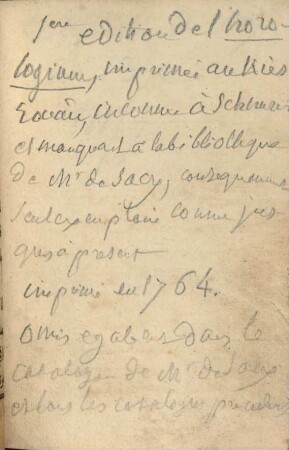 1ere edition de l'horo-
logium, imprimée au Kies
rouan, inconnue à Schnurrer
et manquant à la bibliotheque
de Mr de Sacy, consequemment
seul exemplaire connu jus
ques à present
imprimé en 1764.
Omis egalement dans le
catalogue de Mr de Sacy
et tous les catalogues precedents